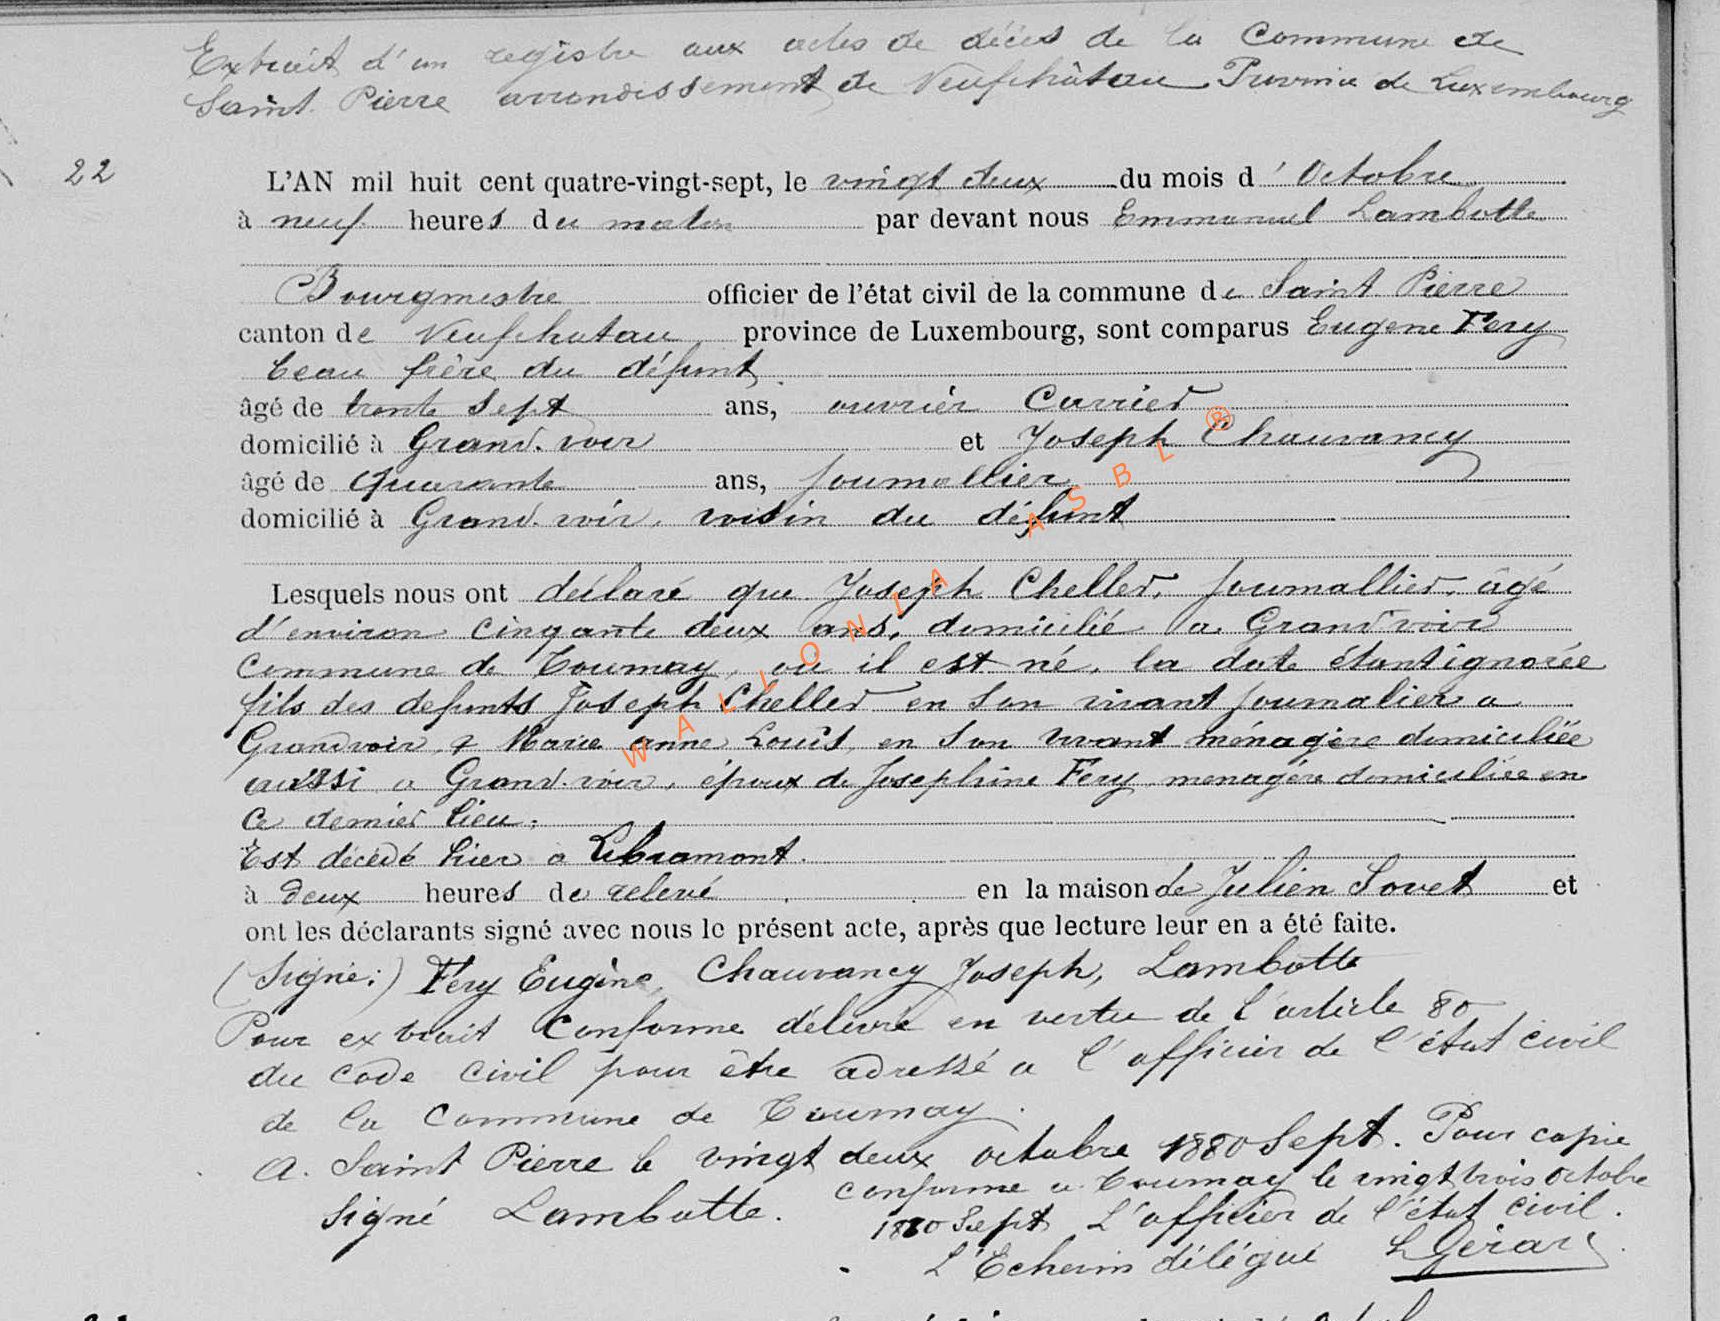 Extrait d'un registre aux actes de décès de la Commune de
Saint Pierre arrondissement de Neufchâteau Province de Luxembourg
22
L'AN mil huit cent quatre-vingt-sept, le vingt deux du mois d'Octobre
à neuf heures du matin par devant nous Emmanuel Lambotte
Bourgmestre officier de l'état civil de la commune de Saint Pierre
canton de Neufchateau, province de Luxembourg, sont comparus Eugene Fery
beau frère du défunt.
âgé de trente sept ans, ouvrier Carrier
domicilié à Grand-voir et Joseph Chauvancy
âgé de Quarante ans, journallier
domicilié à Grand-voir, voisin du défunt
Lesquels nous ont déclaré que Joseph Cheller, journallier, âgé
d'environ cinqante deux ans, domicilié a Grandvoir
commune de Tournay, ou il est né, la date étant ignorée
fils des defunts Joseph Cheller en son vivant journalier a
Grandvoir, & Marie anne Louis, en son vivant ménagère domiciliée
aussi a Grand-voir, époux de Josephine Fery, menagère domiciliée en
ce dernier lieu.
Est décédé hier a Libramont.
à deux heures de relevé en la maison de Julien Sovet et
ont les déclarants signé avec nous le présent acte, après que lecture leur en a été faite.
(Signé:) Fery Eugène, Chauvancy Joseph, Lambotte
Pour extrait conforme délivré en vertu de l'article 80
du code civil pour être adressé a l'officier de l'état civil
de la commune de Tournay.
A. Saint Pierre le vingt deux octobre 1880 Sept. Pour copie
conforme a Tournay le vingt trois octobre
Signé Lambotte. 1880 Sept L'officier de l'état civil.
L'Echevin délégué L Gérard
WALLONIA ASBL ®